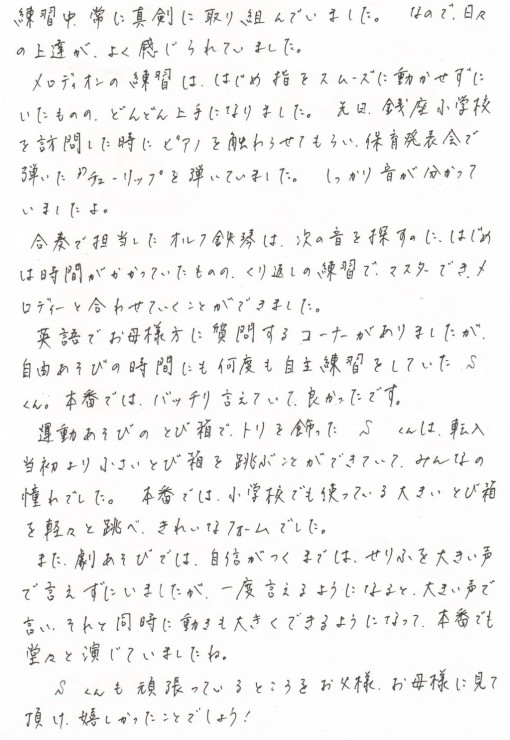 練習中、常に真剣に取り組んでいました。 なので、日々
の上達が、よく感じられていました。
メロディオンの練習は、はじめ指をスムーズに動かせずに
いたものの、どんどん上手になりました。 先日、銭座小学校
を訪問した時にピアノを触わらせてもらい、保育発表会で
弾いた“チューリップ”を弾いていました。 しっかり音が分かって
いましたよ。
合奏で担当したオルフ鉄琴は、次の音を探すのに、はじめ
は時間がかかっていたものの、くり返しの練習で、マスターでき、メ
ロディーと合わせていくことができました。
英語でお母様方に質問するコーナーがありましたが、
自由あそびの時間にも何度も自主練習をしていた S
くん。本番では、バッチリ言えていて、良かったです。
運動あそびのとび箱で、トリを飾った S くんは、転入
当初より小さいとび箱を跳ぶことができていて、みんなの
憧れでした。 本番では、小学校でも使っている大きいとび箱
を軽々と跳べ、きれいなフォームでした。
また、劇あそびでは、自信がつくまでは、せりふを大きい声
で言えずにいましたが、一度言えるようになると、大きい声で
言い、それと同時に動きも大きくできるようになって、本番でも
堂々と演じていましたね。
S くんも頑張っているところをお父様、お母様に見て
頂け、嬉しかったことでしょう!